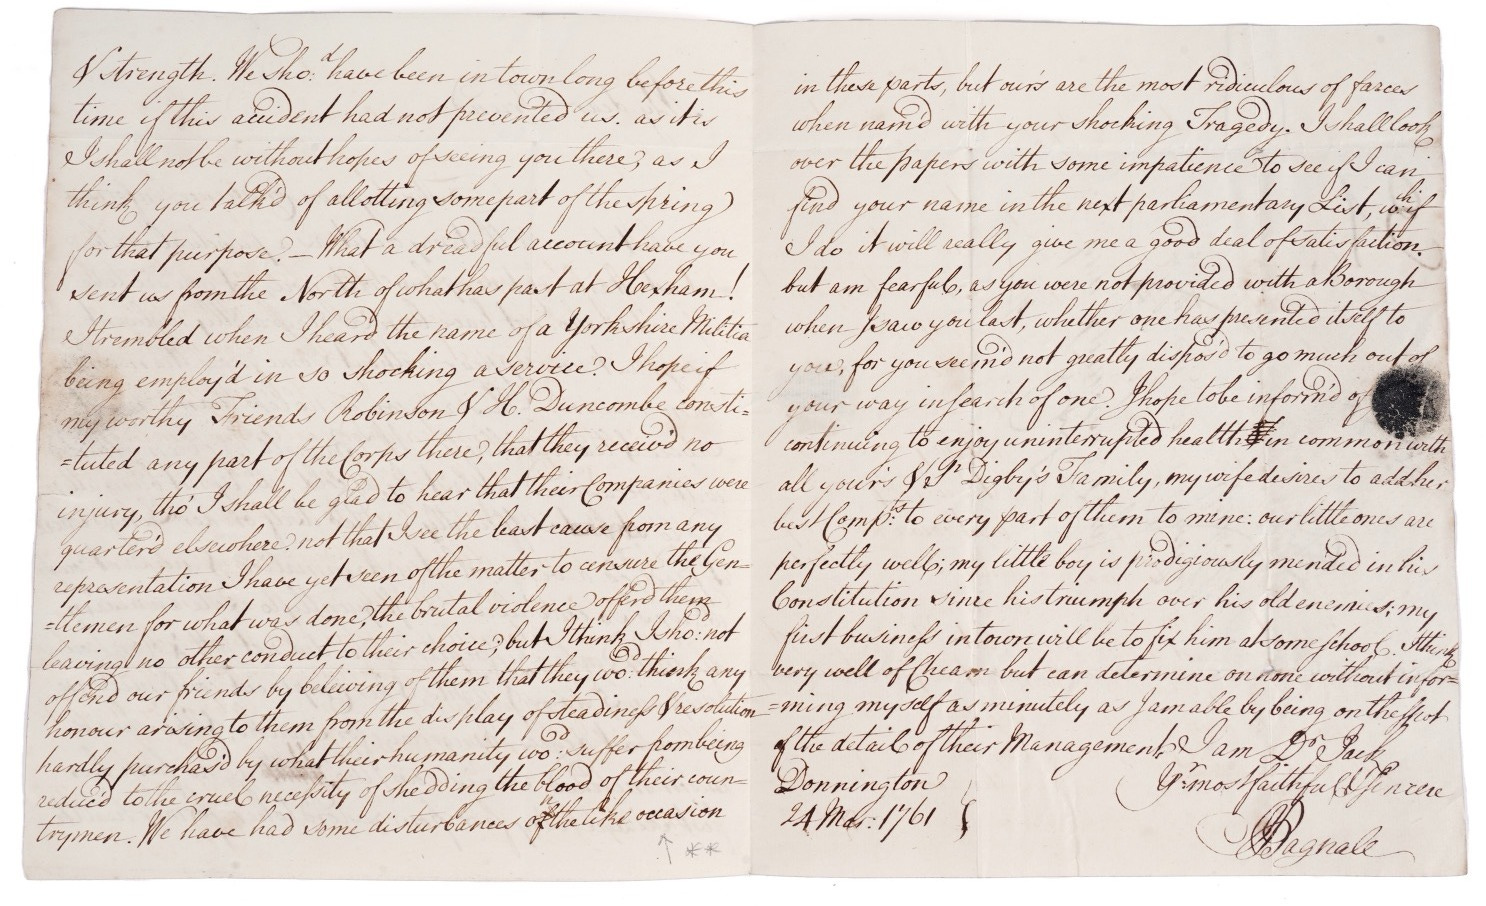 & strength. We sho:d have been in town long before this
time if this accident had not prevented us. as it is
I shall not be without hopes of seeing you there, as I
think you talk'd of allotting some part of the spring
for that purpose. — What a dreadful account have you
sent us from the North of what has past at Hexham!
I trembled when I heard the name of a Yorkshire Militia
being employ'd in so shocking a service. I hope if
my worthy Friends Robinson & H. Duncombe consti=
=tuted any part of the Corps there, that they receiv'd no
injury, tho' I shall be glad to hear that their Companies were
quarter'd elsewhere. not that I see the least cause from any
representation I have yet seen of the matter to censure the Gen=
=tlemen for what was done, the brutal violence offer'd them
leaving no other conduct to their choice; but I think I sho:d not
offend our friends by beleiving of them that they wo:d think any
honour arising to them from the display of steadiness & resolution
hardly purchas'd by what their humanity wo:d suffer from being
reduced to the cruel necessity of shedding the blood of their coun=
trymen. We have had some disturbances on the like occasion
in these parts, but our's are the most ridiculous of farces
when nam'd with your shocking Tragedy. I shall look
over the papers with some impatience to see if I can
find your name in the next parliamentary List, wch if
I do it will really give me a good deal of satisfaction.
but am fearful, as you were not provided with a Borough
when I saw you last, whether one has presented itself to
you, for you seem'd not greatly dispos'd to go much out of
your way in search of one. I hope to be inform'd of
continuing to enjoy uninterrupted health in common with
all your's & Digby's Family, my wife desires to add her
best Comp:ts to every part of them to mine: our little ones are
perfectly well; my little boy is prodigiously mended in his
Constitution since his triumph over his old enemies; my
first business in town will be to fix him at some school. I think
very well of Cheam but can determine on none without infor=
=ming myself as minutely as I am able by being on the spot
of the detail of their Management. I am Dr Jack
Yr most faithful & Sincere
Donnington
24 Mar: 1761
Bagnall